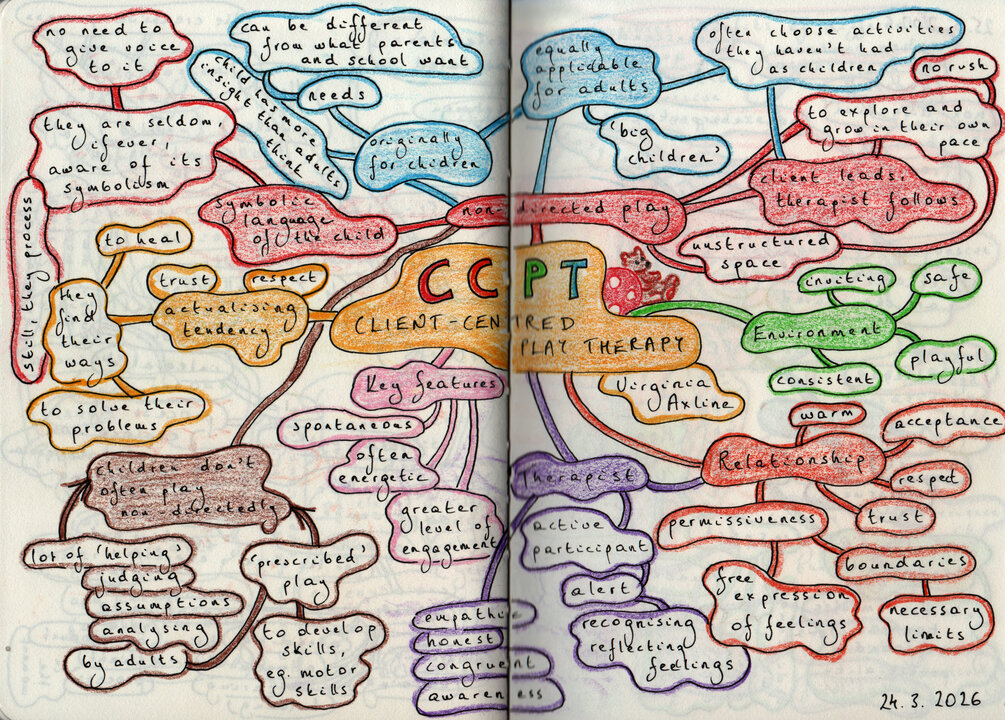 no need to
give voice
to it
can be different
from what parents
and school want
child has more
insight than adults
think
needs
they are seldom,
if ever,
aware of its
symbolism
originally
for chidren
equally
applicable
for adults
'big
children'
often choose activities
they haven't had
as children
no rush
to explore and
grow in their own
pace
client leads,
therapist follows
symbolic
language
of the child
non-directed play
unstructured
space
still, they process
to heal
trust
respect
they
find
their
ways
actualising
tendency
to solve their
problems
CCPT
CLIENT-CENTRED
PLAY THERAPY
Virginia
Axline
inviting
safe
Environment
playful
consistent
Key features
spontaneous
often
energetic
greater
level of
engagement
warm
acceptance
Relationship
respect
trust
permissiveness
boundaries
free
expression
of feelings
necessary
limits
Therapist
active
participant
alert
recognising
reflecting
feelings
empathic
honest
congruent
awareness
children don't
often play
non directedly
lot of 'helping'
judging
assumptions
analysing
by adults
'prescribed'
play
to develop
skills,
eg. motor
skills
24. 3. 2026